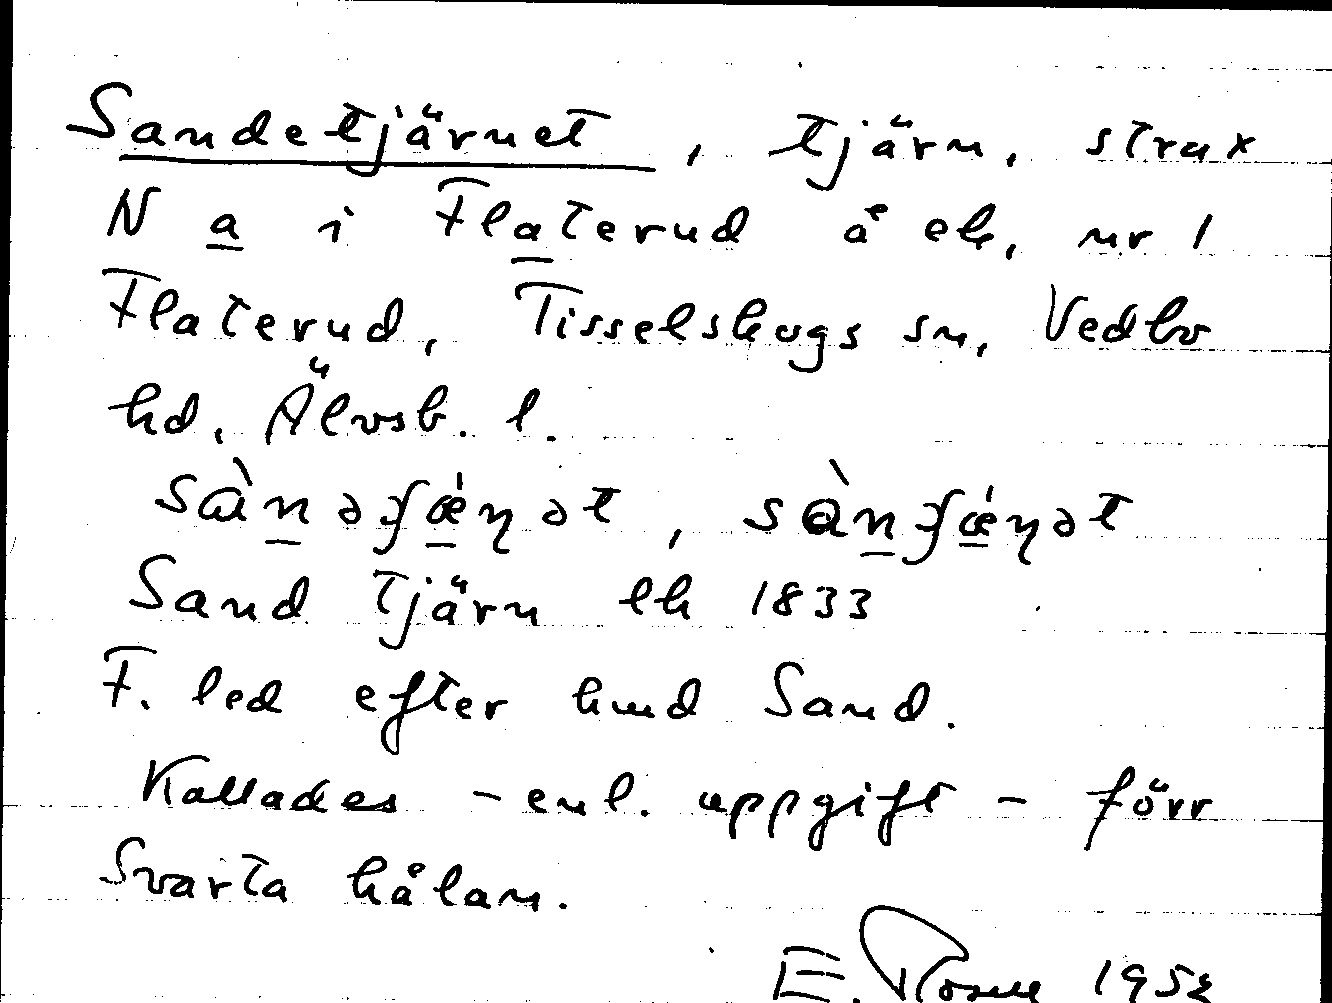 Sandetjärnet, tjärn, strax
N a i Flaterud å ek, nr 1
Flaterud, Tisselskogs sn, Vedbo
hd, Älvsb. l.
Sand Tjärn lk 1833
F. led efter hmd Sand.
Kallades - enl. uppgift - förr
Svarta hålan.
E. 1952